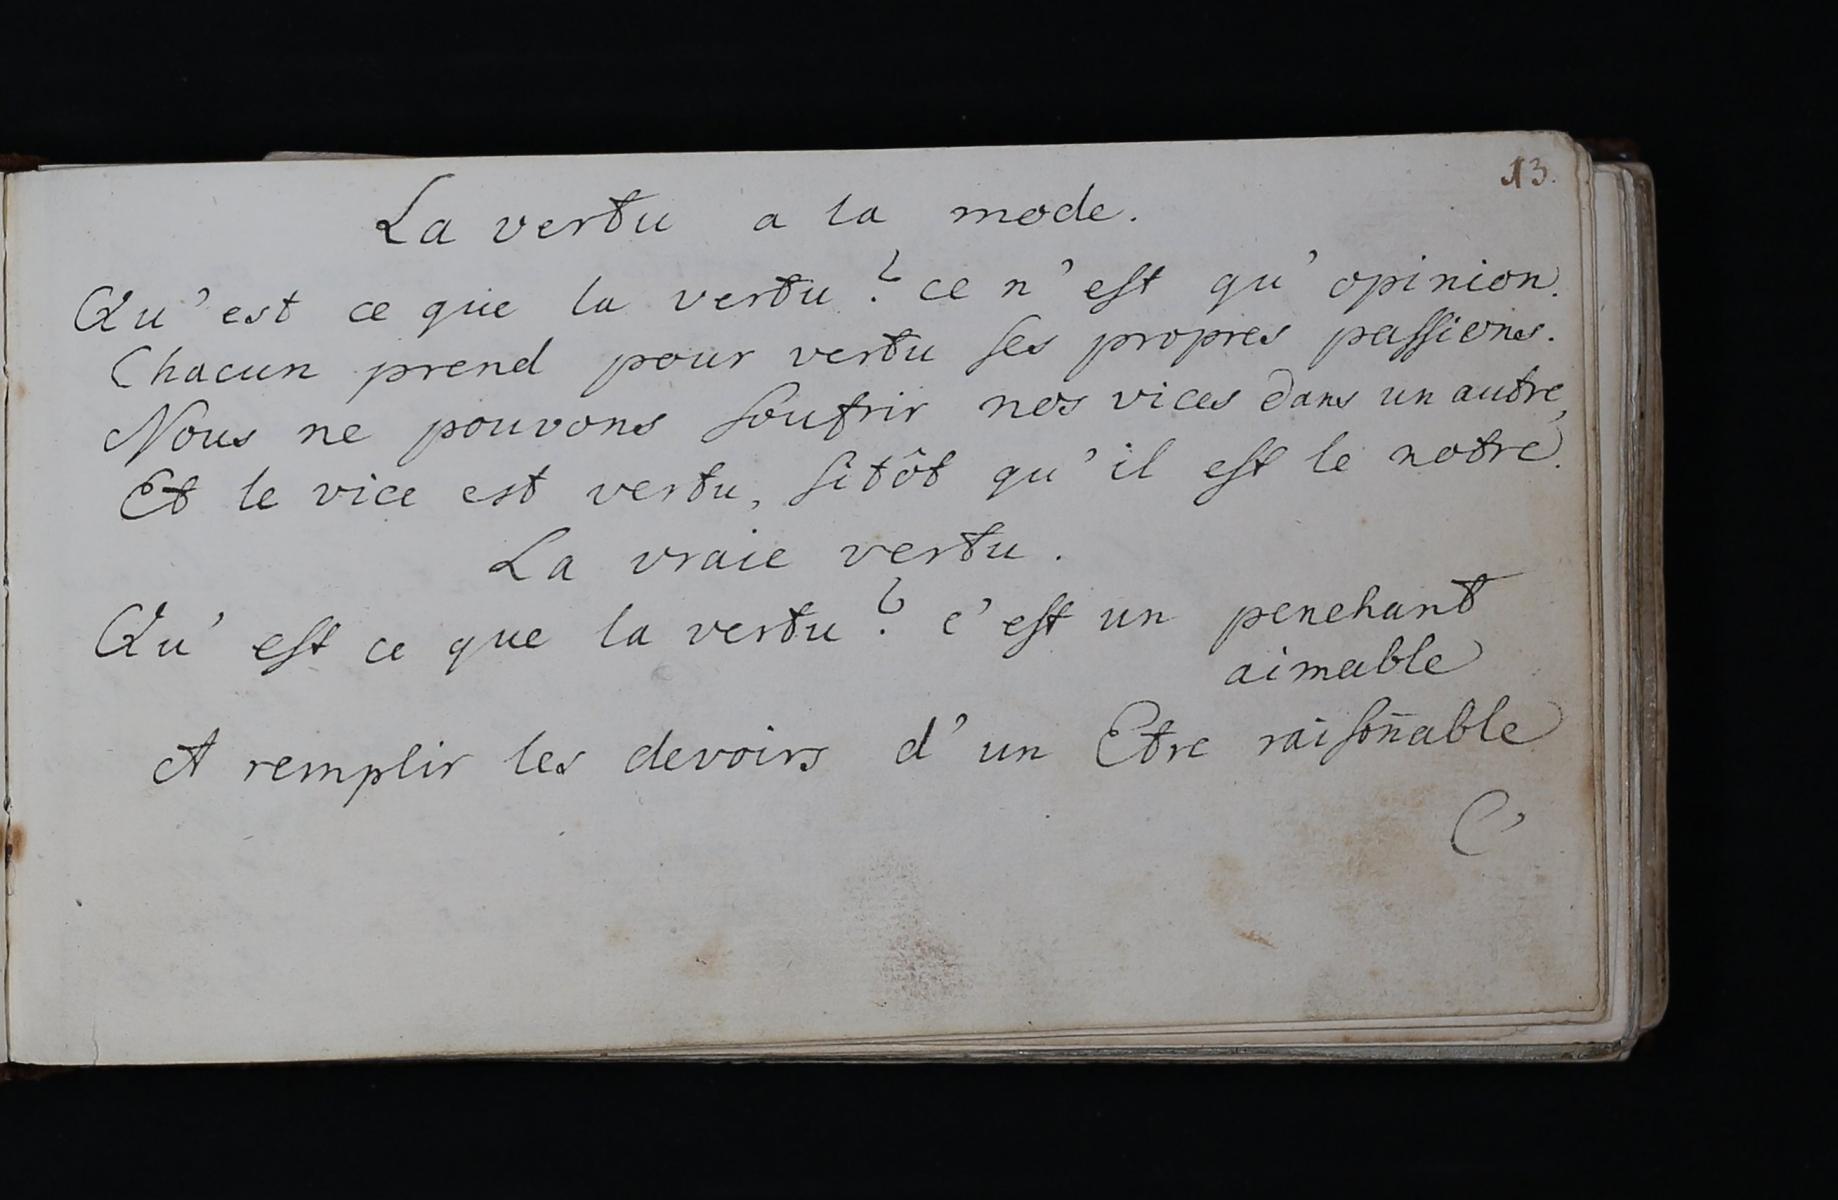 13.
La vertu a la mode.
Qu'est ce que la vertu? ce n'est qu'opinion.
Chacun prend pour vertu ses propres passions.
Nous ne pouvons soufrir nos vices dans un autre,
Et le vice est vertu, sitôt qu'il est le notre.
La vraie vertu.
Qu'est ce que la vertu? c'est un penchant
aimable
A remplir les devoirs d'un Etre raison̄able